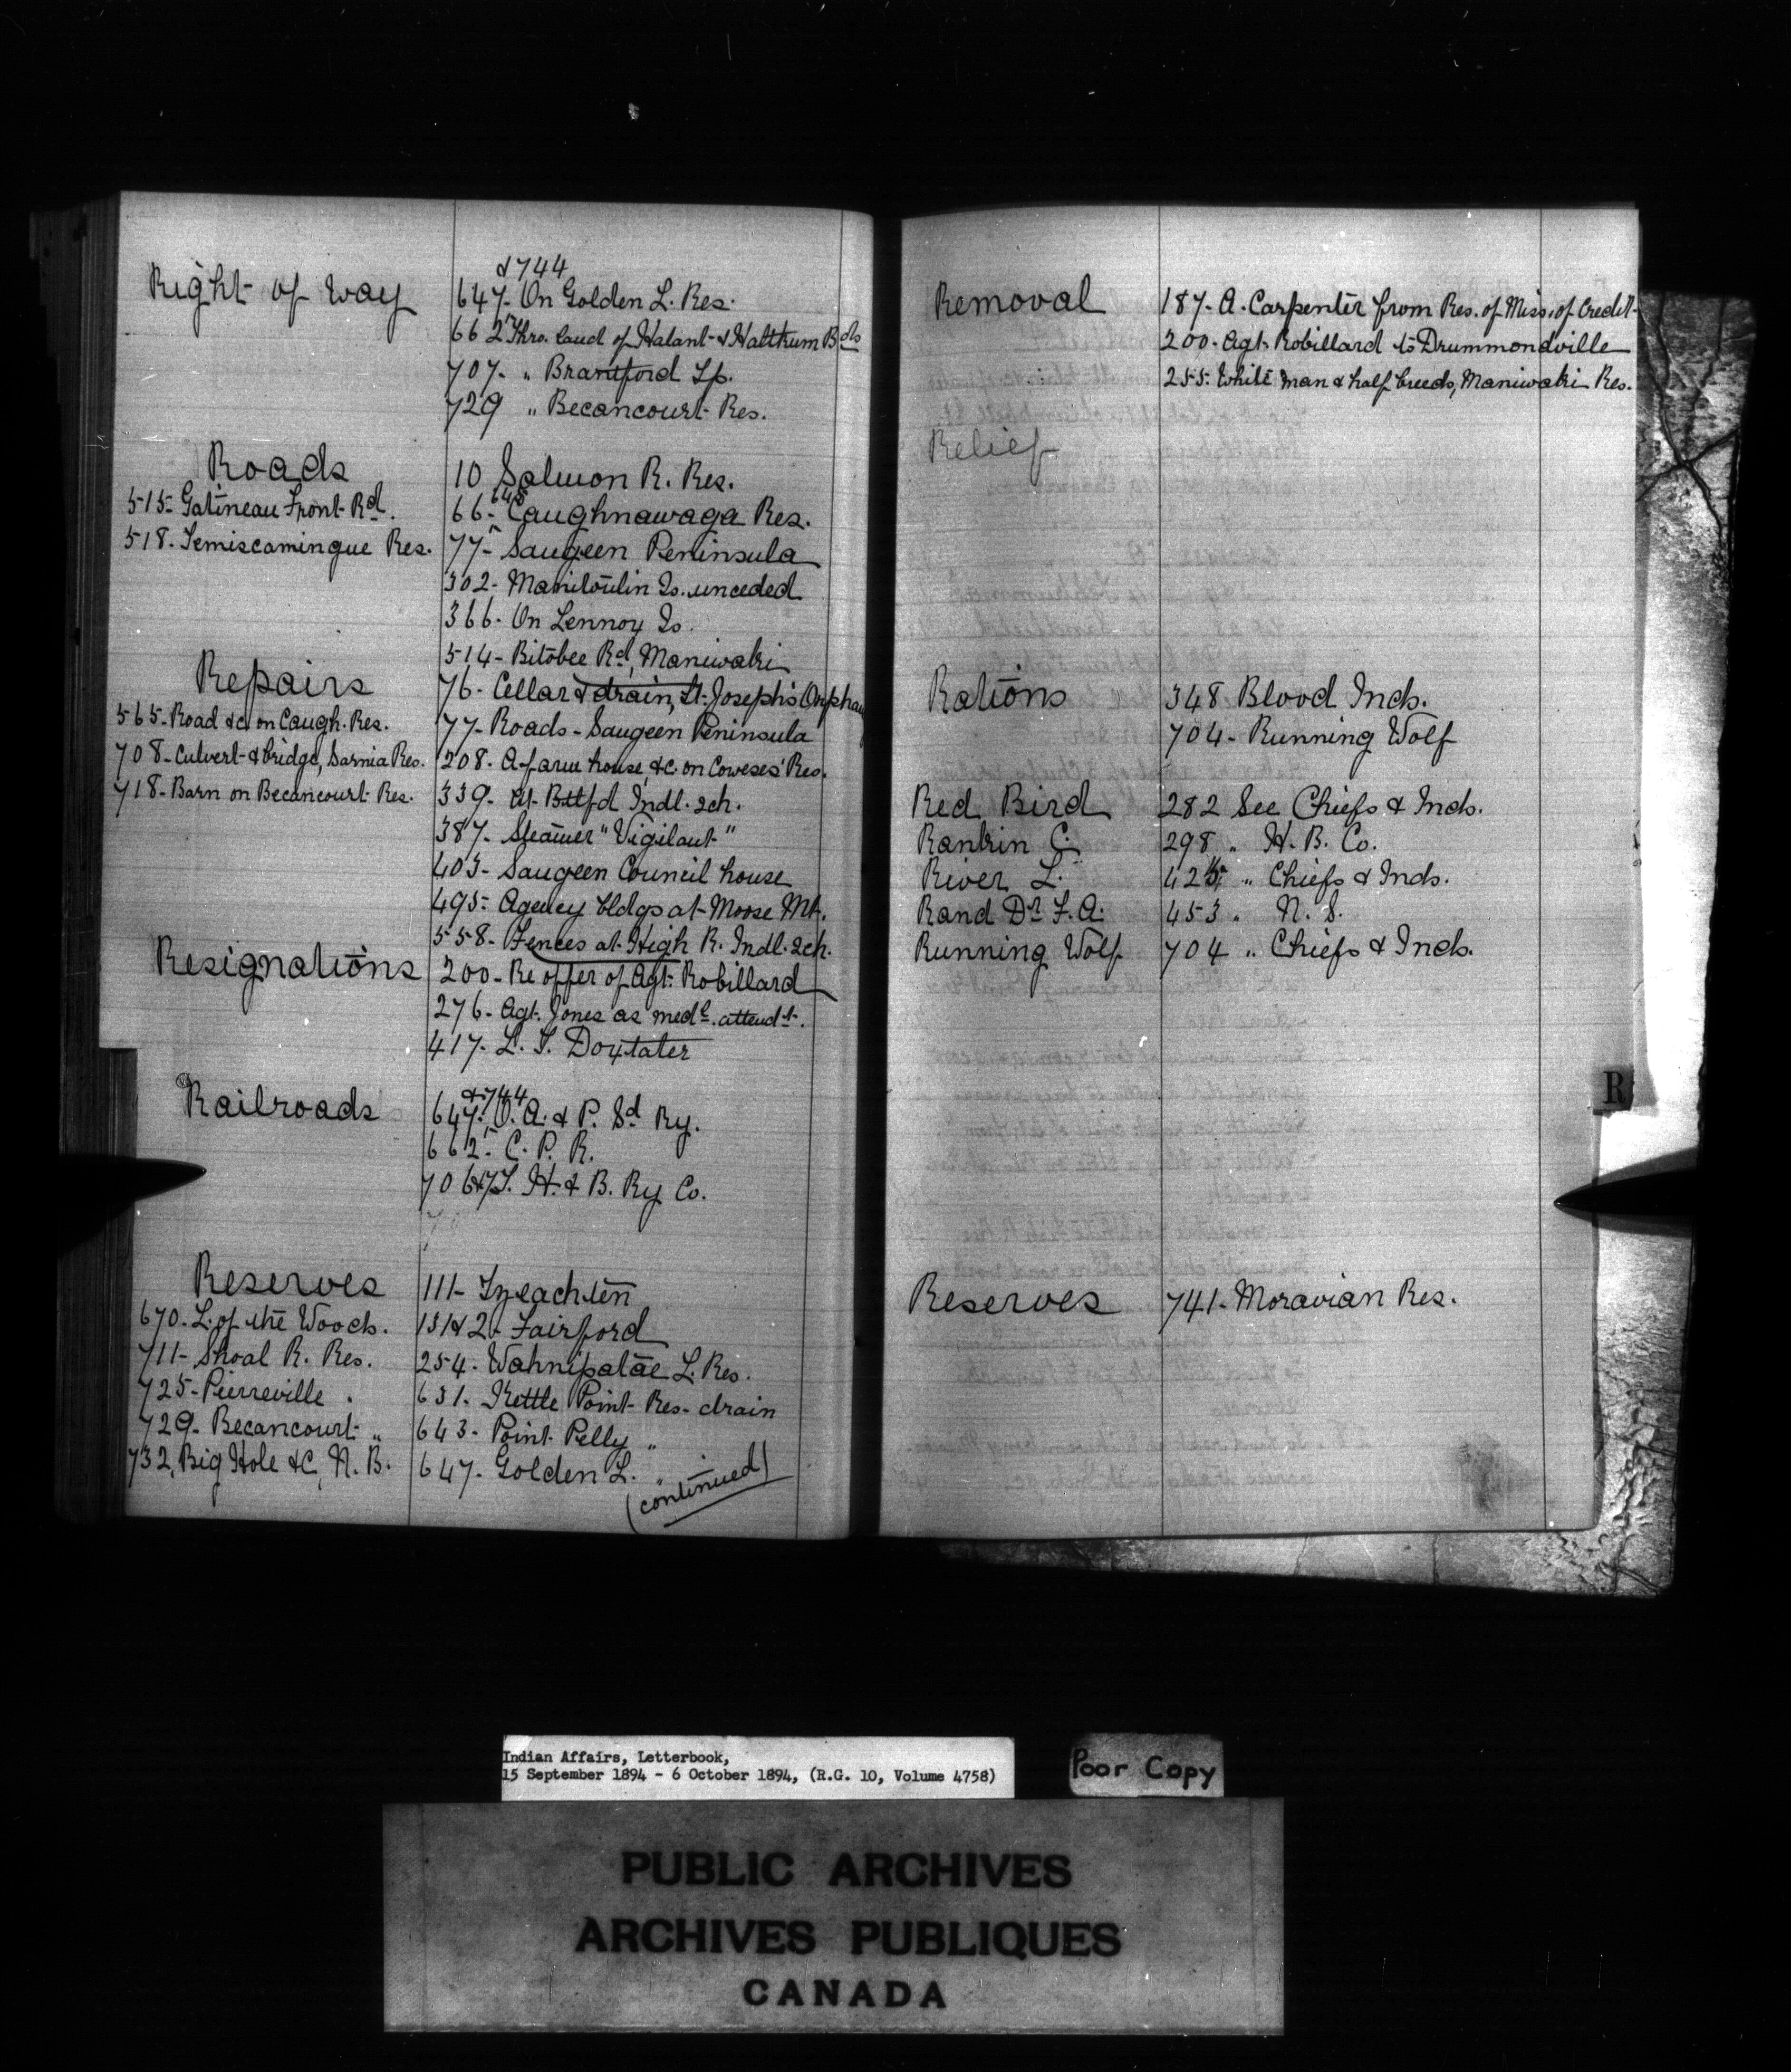 & 744
Right of Way 647- On Golden L. Res.
662 Thro. land of Halant & Haltkum Bds
707- " Brantford Tp.
729 " Becancourt Res.
Roads 10 Salmon R. Res.
515- Gatineau Front Rd. 66- 645 Caughnawaga Res.
518- Temiscamingue Res. 77- Saugeen Peninsula
302- Manitoulin Is. unceded
366- On Lennox Is.
514- Bitobee Rd, Maniwaki
Repairs 76- Cellar & drain, St. Joseph's Orphan
565- Road &c on Caugh. Res. 77- Roads - Saugeen Peninsula
708- Culvert & bridge, Sarnia Res. 208- A farm house &c. on Coweses' Res.
718- Barn on Becancourt Res. 339- At Bttfd Indl. sch.
387- Steamer "Vigilant"
403- Saugeen Council house
495- Agency bldgs at Moose Mt.
558- Fences at High R. Indl. sch.
Resignations 200- Re offer of Agt. Robillard
276- Agt. Jones as medl. attendt.
417- L. S. Doxtater
& 744
Railroads 647- O. A. & P. Sd Ry.
662- C. P. R.
706&7 T. H. & B. Ry Co.
70
Reserves 111- Tzeachten
670- L. of the Woods. 131&2- Fairford
711- Shoal R. Res. 254- Wahnipatae L. Res.
725- Pierreville " 631- Kettle Point Res- drain
729- Becancourt " 643- Point Pelly "
732, Big Hole &c, N. B. 647- Golden L. "
(continued)
Removal 187- A. Carpenter from Res. of Miss. of Credit-
200- Agt. Robillard to Drummondville
255- White man & half breeds, Maniwaki Res.
Relief
Rations 348 Blood Inds.
704- Running Wolf
Red Bird 282 See Chiefs & Inds.
Rankin C. 298 " H. B. Co.
River L. " Chiefs & Inds.
Rand Dr F. A. 453 " N. S.
Running Wolf 704 " Chiefs & Inds.
R
Reserves 741- Moravian Res.
Indian Affairs, Letterbook,
15 September 1894 - 6 October 1894, (R.G. 10, Volume 4758)
Poor Copy
PUBLIC ARCHIVES
ARCHIVES PUBLIQUES
CANADA